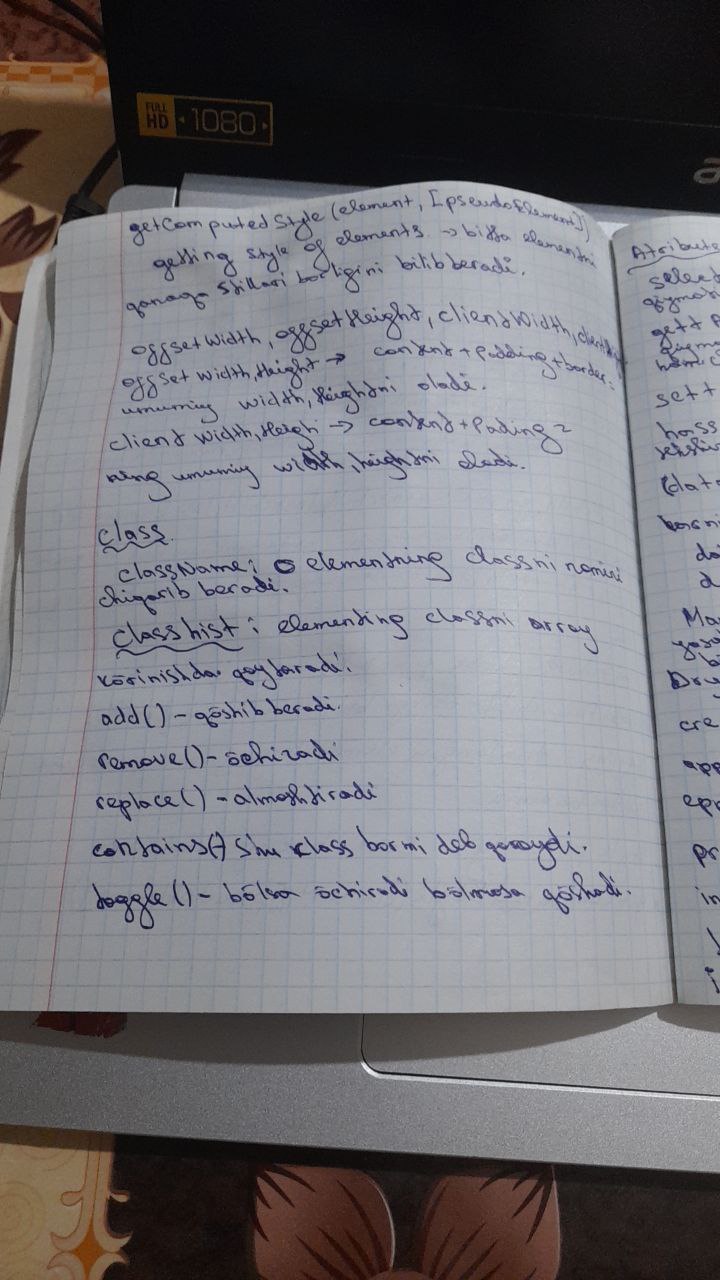 FULL HD 1080
a
getComputedStyle (element, [pseudoElement])
getting style of elements → bitta elementni
qanaqa stillari borligini bilib beradi.
offsetWidth, offsetHeight, clientWidth, client
offset width, Height → content + padding + border =
umumiy width, heightni oladi.
client width, Heigh → content + Pading =
ning umumiy width, heightni oladi.
class.
className: elementning classni nomini
chiqarib beradi.
classList: elementing classni array
körinishda qaytaradi.
add() - qöshib beradi.
remove() - öchiradi
replace() - almashtiradi
contains() shu class bormi deb qaraydi.
toggle() - bölsa öchiradi bölmasa qöshadi.
Atribute
select
qiymati
sett
hass
(dat
Ma
cre
app
pr
in